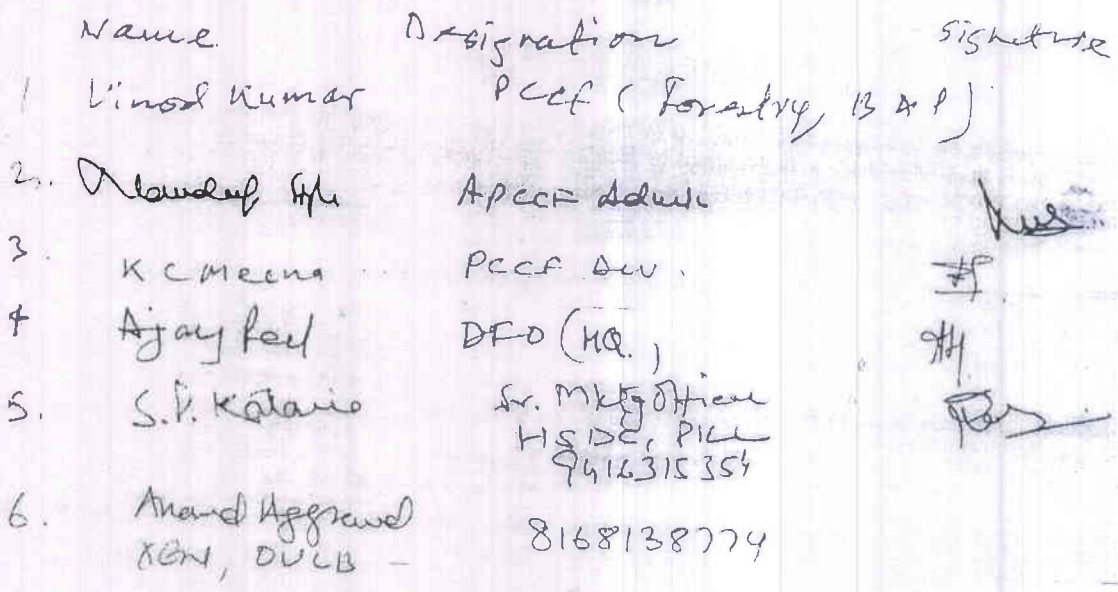 Name Designation Signature
1 Vinod Kumar PCCF (Forestry, B & P)
2. APCCF Admn
3 K C Meena PCCF Dev.
4 Ajay DFO (HQ.)
5. S.P. Kataria Sr. Mktg Officer
HSDC, PKL
9416315354
6. Anand Aggrawal 8168138774
XEN, DULB -